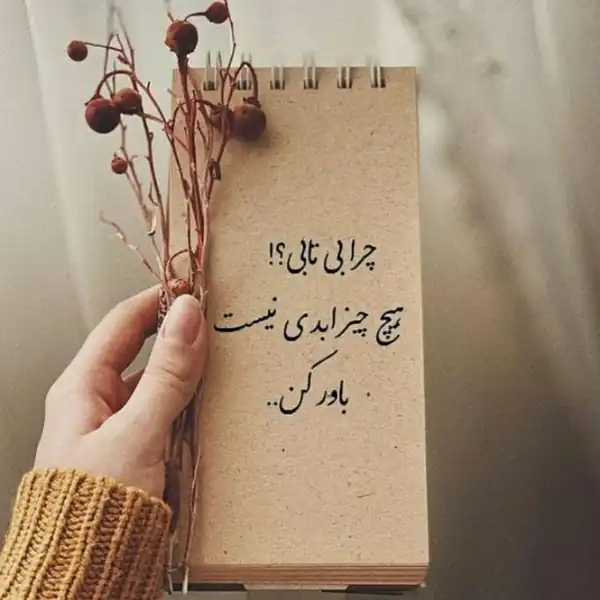 چرا بی تابی؟!
هیچ چیز ابدی نیست
باور کن..